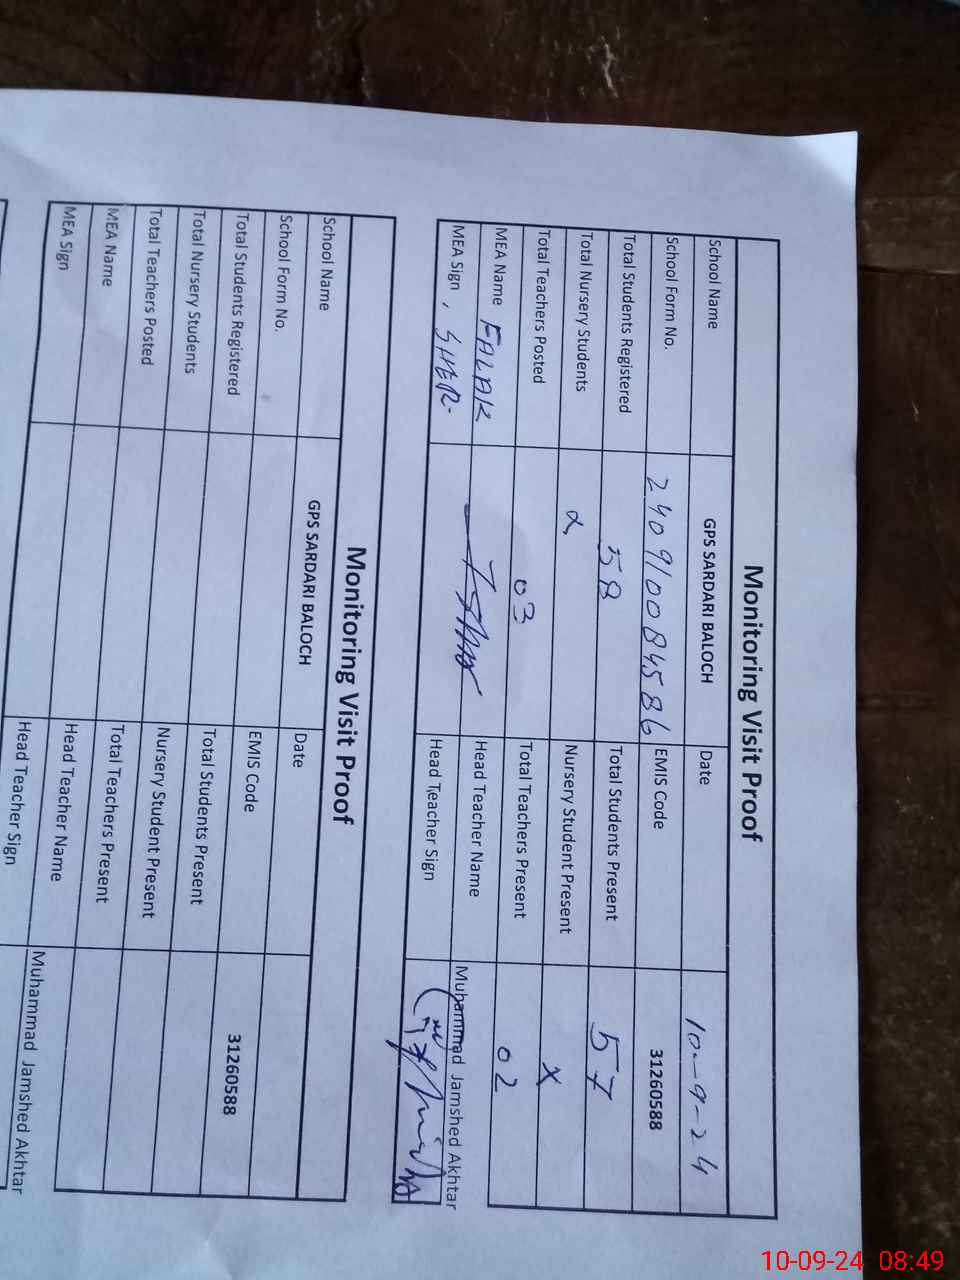 Monitoring Visit Proof
School Name GPS SARDARI BALOCH Date 10-9-24
School Form No. 240910084586 EMIS Code 31260588
Total Students Registered 58 Total Students Present 57
Total Nursery Students Nursery Student Present X
Total Teachers Posted 03 Total Teachers Present 02
MEA Name FALAK Head Teacher Name Muhammad Jamshed Akhtar
MEA Sign , SHER. Head Teacher Sign
Monitoring Visit Proof
School Name GPS SARDARI BALOCH Date
School Form No. EMIS Code 31260588
Total Students Registered Total Students Present
Total Nursery Students Nursery Student Present
Total Teachers Posted Total Teachers Present
MEA Name Head Teacher Name Muhammad Jamshed Akhtar
MEA Sign Head Teacher Sign
10-09-24 08:49